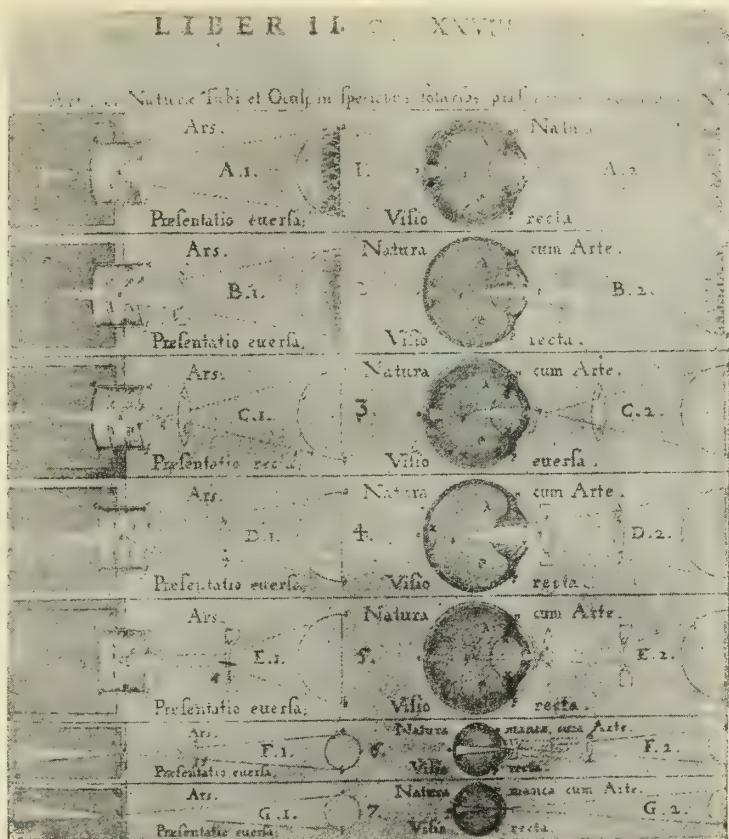 LIBER II XXVIII
Naturæ Tubi et Oculi, in speciebus solaribus
Ars. Natura
A.1. 1. A.2
Præsentatio euersa; Visio recta
Ars. Natura cum Arte.
B.1. B.2.
Præsentatio euersa; Visio recta.
Ars. Natura cum Arte.
C.1. 3. C.2.
Præsentatio recta; Visio euersa.
Ars. Natura cum Arte.
D.1. 4. D.2.
Præsentatio euersa; Visio recta.
Ars. Natura cum Arte.
E.1. 5. E.2.
Præsentatio euersa; Visio recta.
Ars. Natura manca, cum Arte.
F.1. 6. F.2.
Præsentatio euersa; Visio recta.
Ars. Natura manca cum Arte.
G.1. 7. G.2.
Præsentatio euersa; Visio recta.